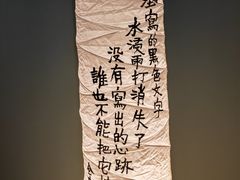 寫的黑色文字
水滴雨打消失了
沒有寫出的心跡
誰也不能把它